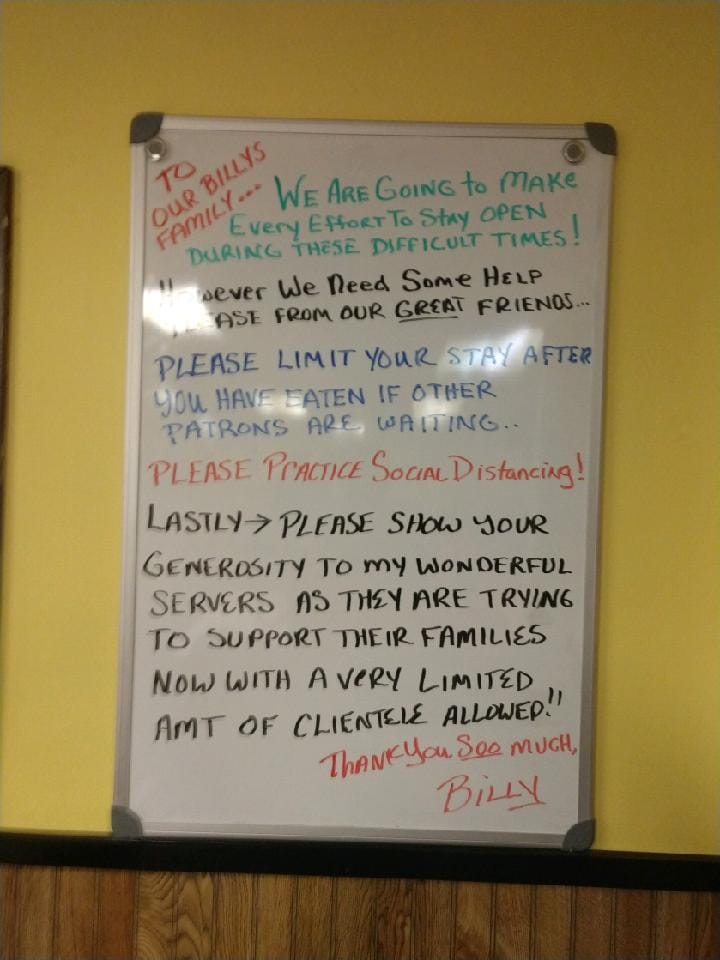 TO
OUR BILLYS
FAMILY... WE ARE GOING to MAKE
Every EFFORT To Stay OPEN
DURING THESE DIFFICULT TIMES!
However We Need Some HELP
PLEASE FROM OUR GREAT FRIENDS...
PLEASE LIMIT YOUR STAY AFTER
YOU HAVE EATEN IF OTHER
PATRONS ARE WAITING..
PLEASE PRACTICE SOCIAL Distancing!
LASTLY→ PLEASE SHOW YOUR
GENEROSITY TO MY WONDERFUL
SERVERS AS THEY ARE TRYING
TO SUPPORT THEIR FAMILIES
NOW WITH A VERY LIMITED
AMT OF CLIENTELE ALLOWED!!
THANK You Soo MUCH,
BILLY